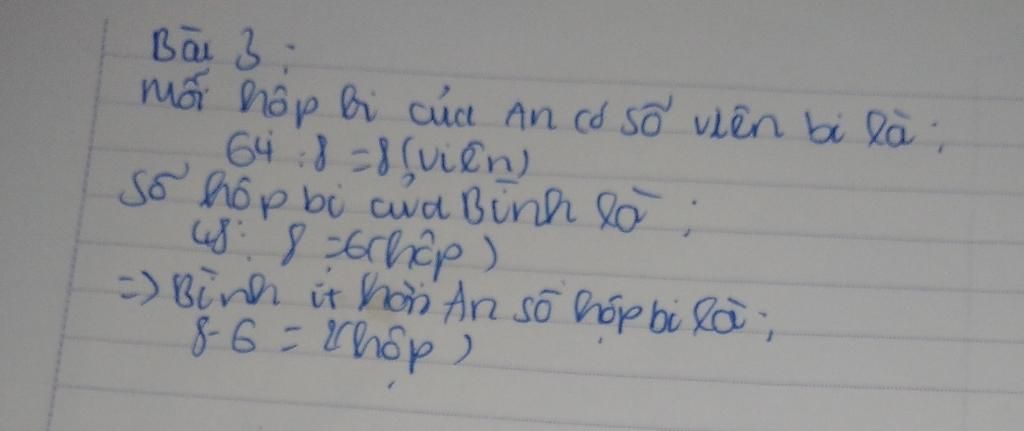 Bài 3 :
Mỗi hộp bi của An có số viên bi là :
64 : 8 = 8 (viên)
Số hộp bi của Bình là :
48 : 8 = 6 (hộp)
=> Bình ít hơn An số hộp bi là :
8 - 6 = 2 (hộp)